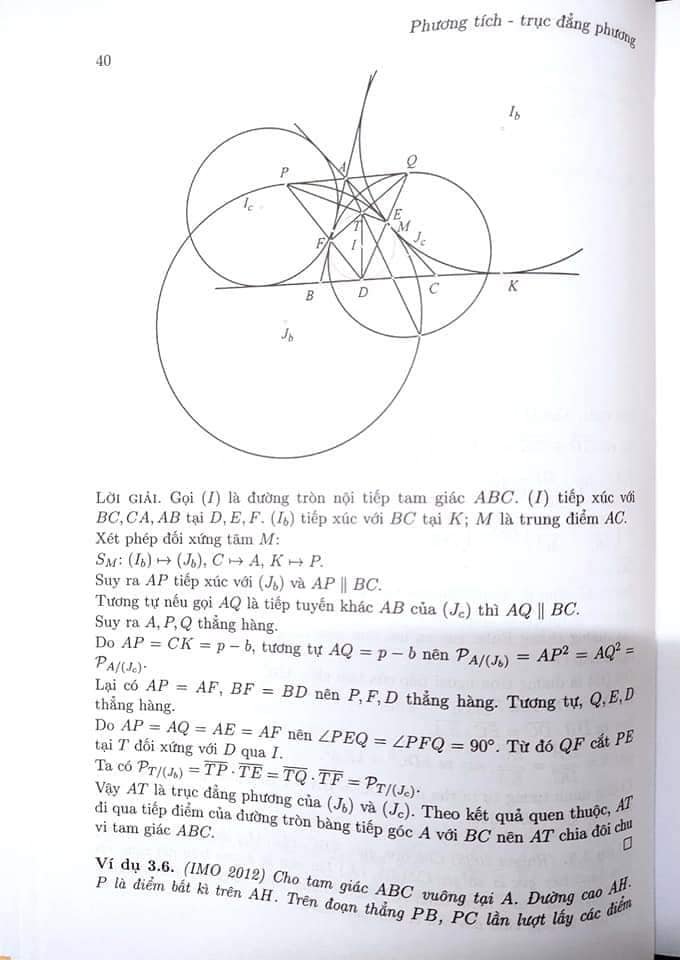 Phương tích - trục đẳng phương
40
I_b
P
A
Q
I_c
T
E
M
F
I
J_c
B
D
C
K
J_b
LỜI GIẢI. Gọi (I) là đường tròn nội tiếp tam giác ABC. (I) tiếp xúc với
BC, CA, AB tại D, E, F. (I_b) tiếp xúc với BC tại K; M là trung điểm AC.
Xét phép đối xứng tâm M:
S_M: (I_b) ↦ (J_b), C ↦ A, K ↦ P.
Suy ra AP tiếp xúc với (J_b) và AP ∥ BC.
Tương tự nếu gọi AQ là tiếp tuyến khác AB của (J_c) thì AQ ∥ BC.
Suy ra A, P, Q thẳng hàng.
Do AP = CK = p − b, tương tự AQ = p − b nên 𝒫_{A/(J_b)} = AP² = AQ² =
𝒫_{A/(J_c)}.
Lại có AP = AF, BF = BD nên P, F, D thẳng hàng. Tương tự, Q, E, D
thẳng hàng.
Do AP = AQ = AE = AF nên ∠PEQ = ∠PFQ = 90°. Từ đó QF cắt PE
tại T đối xứng với D qua I.
Ta có 𝒫_{T/(J_b)} = T̅P̅ · T̅E̅ = T̅Q̅ · T̅F̅ = 𝒫_{T/(J_c)}.
Vậy AT là trục đẳng phương của (J_b) và (J_c). Theo kết quả quen thuộc, AT
đi qua tiếp điểm của đường tròn bàng tiếp góc A với BC nên AT chia đôi chu
vi tam giác ABC. □
Ví dụ 3.6. (IMO 2012) Cho tam giác ABC vuông tại A. Đường cao AH.
P là điểm bất kì trên AH. Trên đoạn thẳng PB, PC lần lượt lấy các điểm